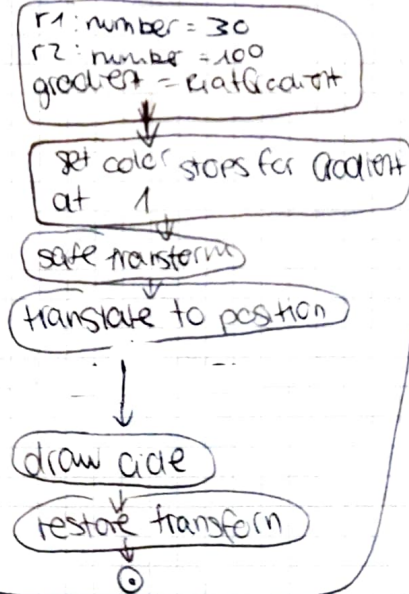 r1: number = 30
r2: number = 100
gradient =
set color stops for Gradient
at 1
safe transform
translate to position
draw circle
restore transform